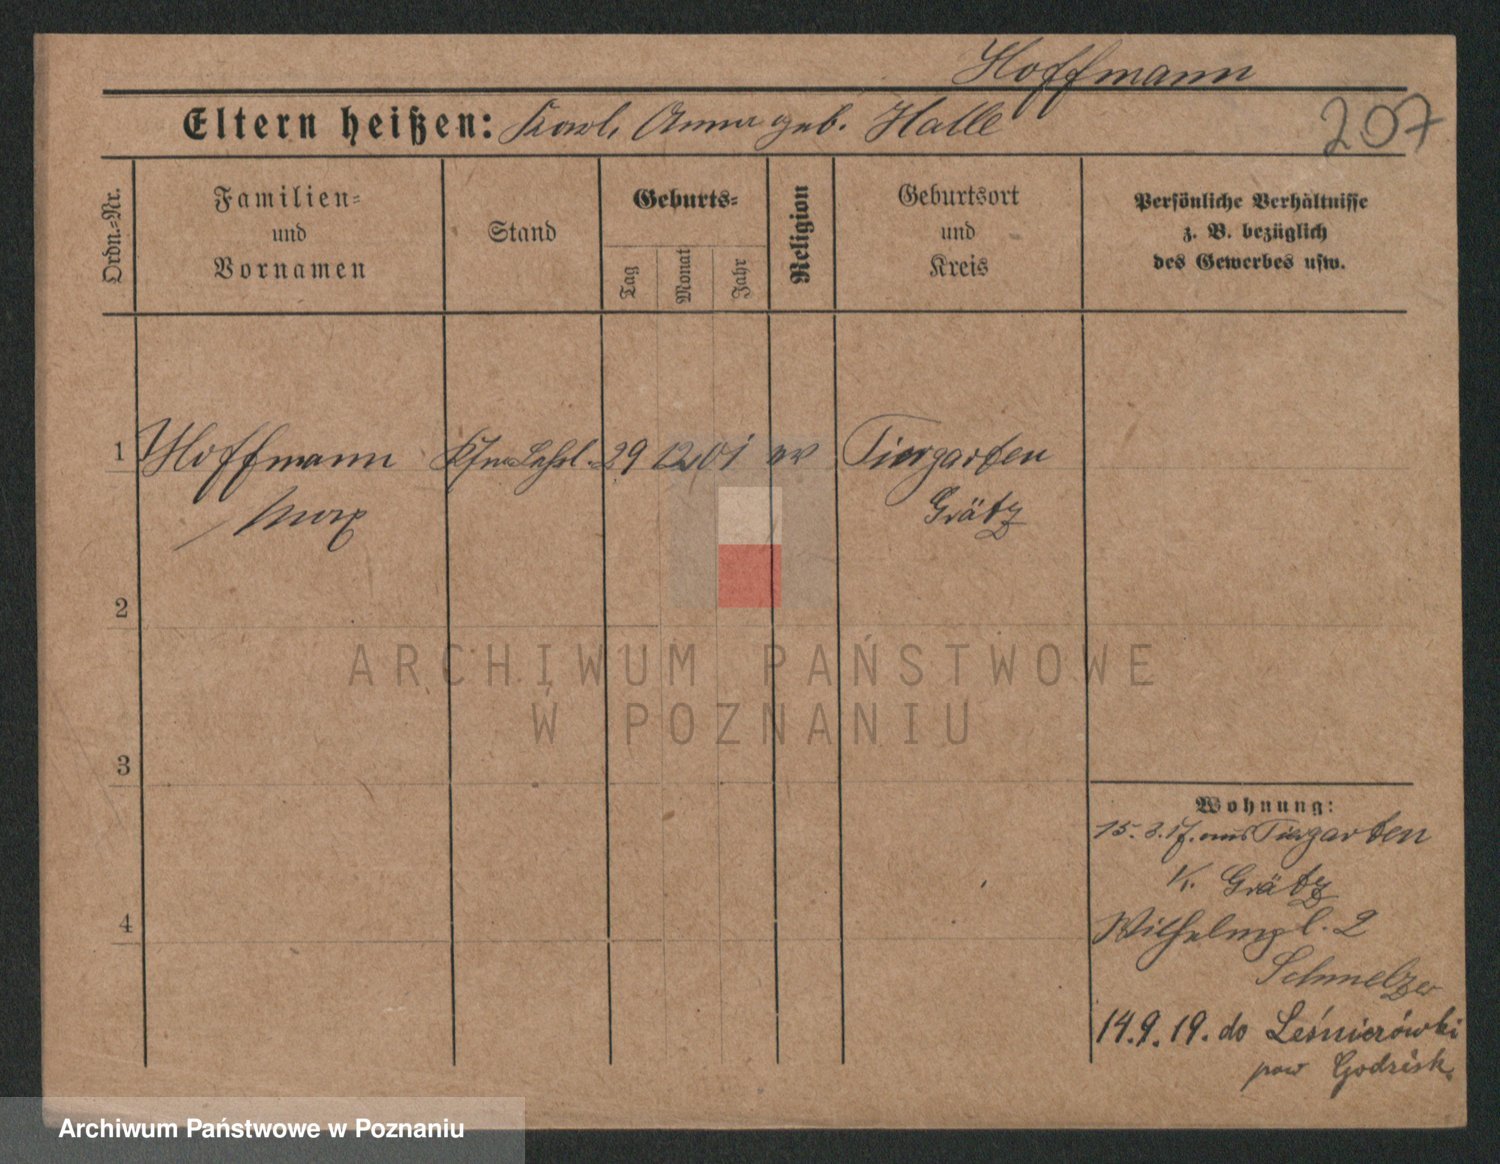 Hoffmann
Eltern heißen: Karl, Anna geb. Halle
207
Ordn.-Nr.
Familien-
und
Vornamen
Stand
Geburts-
Tag
Monat
Jahr
Religion
Geburtsort
und
Kreis
Persönliche Verhältnisse
z. B. bezüglich
des Gewerbes usw.
1 Hoffmann Kfm Lehrl. 29 12 01 ev Tiergarten
Max Grätz
2
ARCHIWUM PAŃSTWOWE
W POZNANIU
3
Wohnung:
15.3.17. aus Tiergarten
K. Grätz
4
Wilhelmpl. 2
Schmelzer
14.9.19. do Leśnierówki
pow Godzisk.
Archiwum Państwowe w Poznaniu